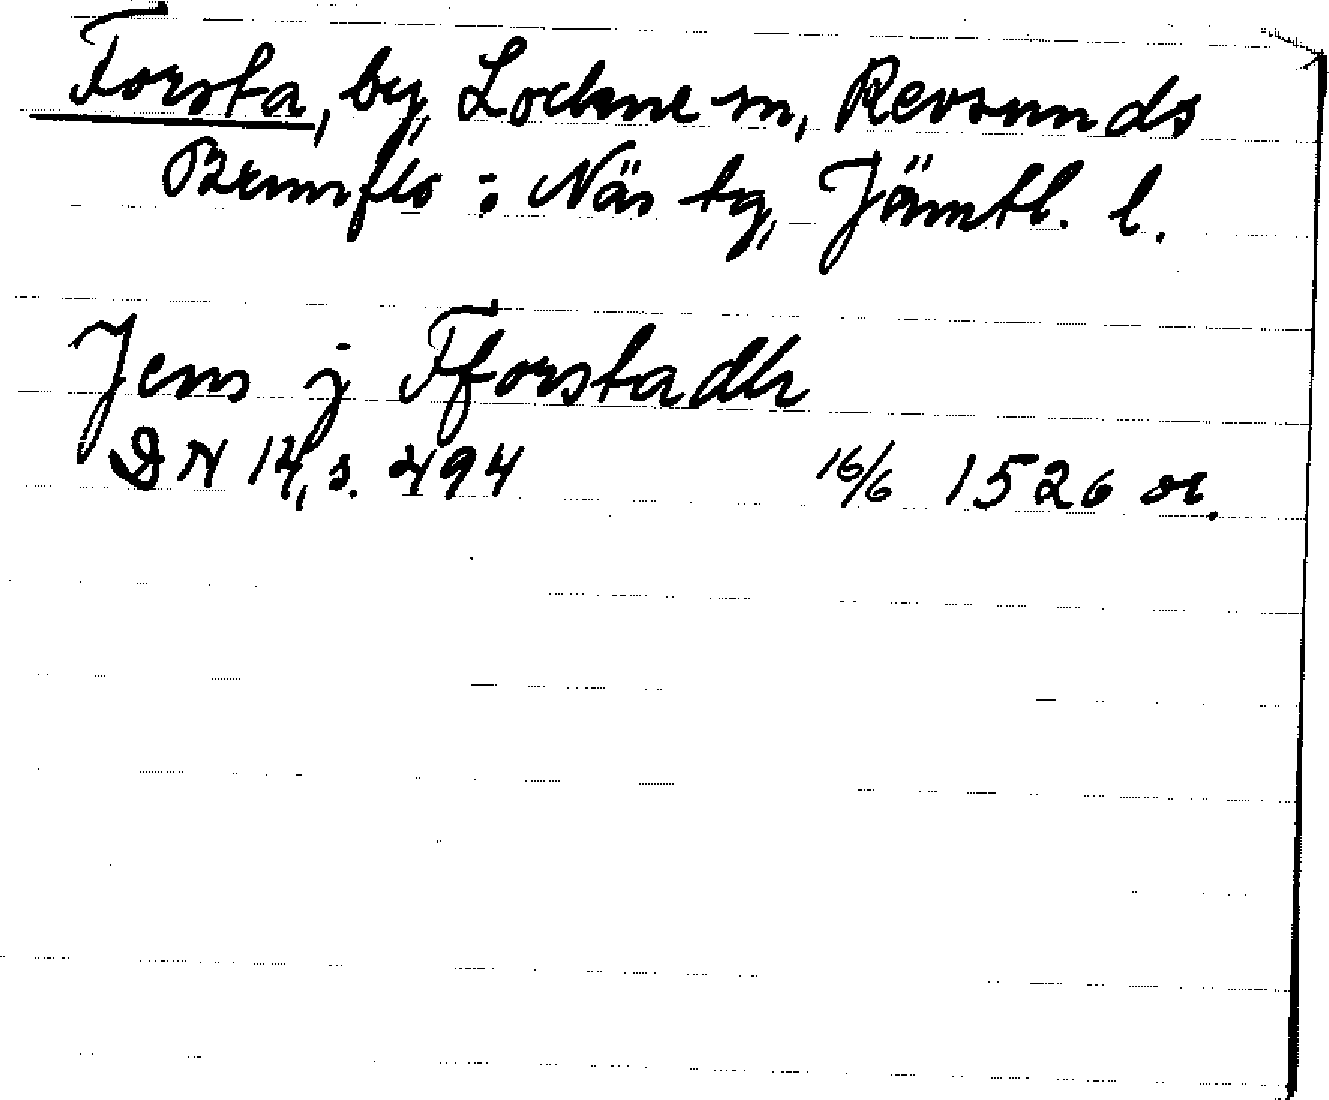 Forsta, by, Lockne sn, Revsunds
Brunflo : Näs tg, Jämtl. l.
Jens j Fforstadh
DN 14, s. 494 16/6 1526 or.